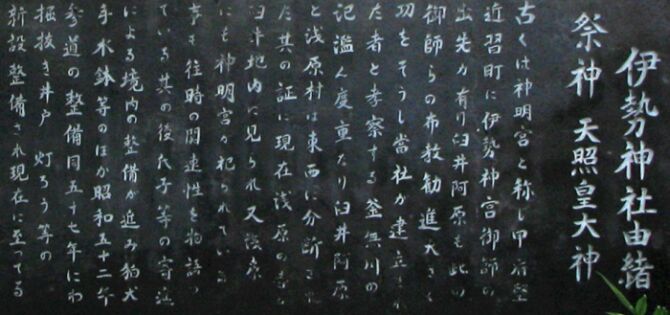 伊勢神社由緒
祭神 天照皇大神
古くは神明宮と称し甲府
近習町に伊勢神宮御師の
出先が有り臼井阿原も此の
御師らの布教勧進大きく
功をそうし當社が建立
た者と考察する釜無川の
記濫ん度重たり臼井阿原
と浅原村は東西に分断さ
た其の証に現在浅原の
臼井地内に見られ又浅原
にも神明宮が祀られている
事も往時の関連性を物語っ
ている其の後氏子等の寄
による境内の整備が進み狛犬
手水鉢等のほか昭和五十二年
参道の整備同五十七年にわ
掘抜き井戸 灯ろう等の
新設整備され現在に至ってる